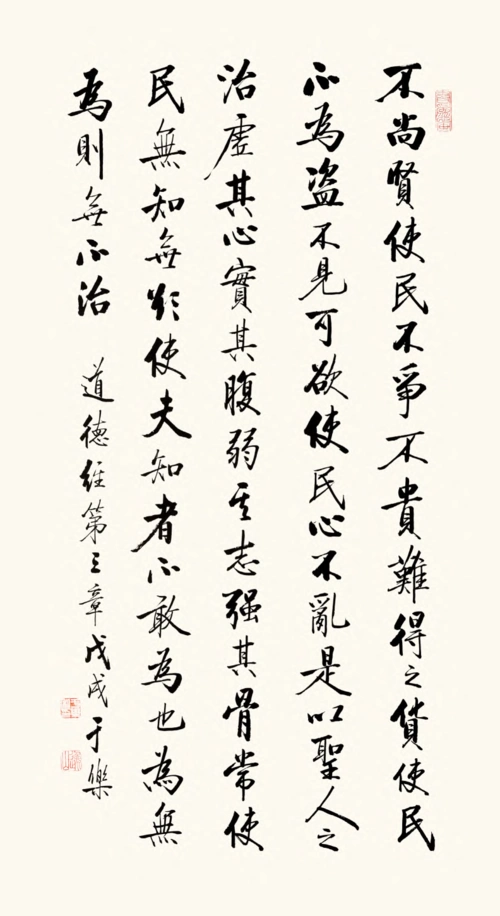 不尚賢使民不爭不貴難得之貨使民
不為盜不見可欲使民心不亂是以聖人之
治虛其心實其腹弱其志强其骨常使
民無知無欲使夫知者不敢為也為無
為則無不治
道德經第三章戊戌于樂